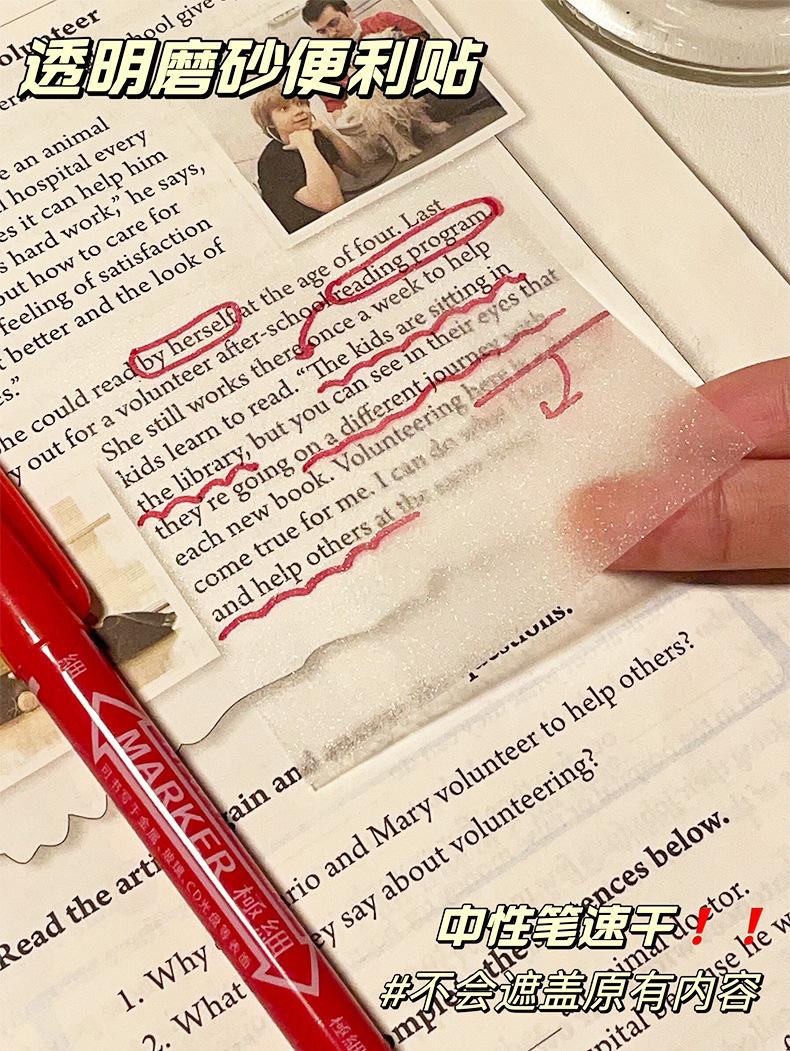 olunteer
chool give o
透明磨砂便利贴
e an animal
l hospital every
es it can help him
s hard work," he says,
out how to care for
feeling of satisfaction
t better and the look of
es."
by herself at the age of four. Last
he could read
y out for a volunteer after-school reading program.
She still works there once a week to help
kids learn to read. "The kids are sitting in
the library, but you can see in their eyes that
they're going on a different journey with
each new book. Volunteering here is
come true for me. I can do what I
and help others at the same
ain an
Read the arti
1. Why
rio and Mary volunteer to help others?
2. What
ey say about volunteering?
mple the ences below.
animal doctor.
spital se he w
細
MARKER 極細
可书写于金属、玻璃、CD光盘等表面
極細
中性笔速干❗❗
#不会遮盖原有内容